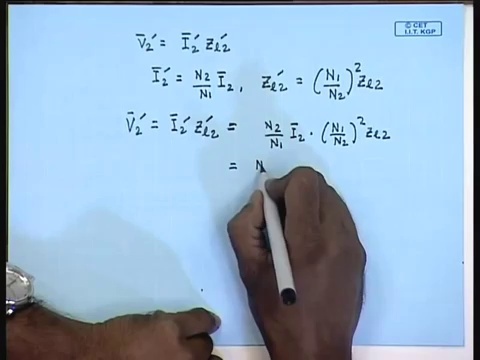 © CET
I.I.T. KGP
V̄₂′ = Ī₂′ Zℓ₂′
Ī₂′ = N₂/N₁ Ī₂, Zℓ₂′ = (N₁/N₂)² Zℓ₂
V̄₂′ = Ī₂′ Zℓ₂′ = N₂/N₁ Ī₂ · (N₁/N₂)² Zℓ₂
= N